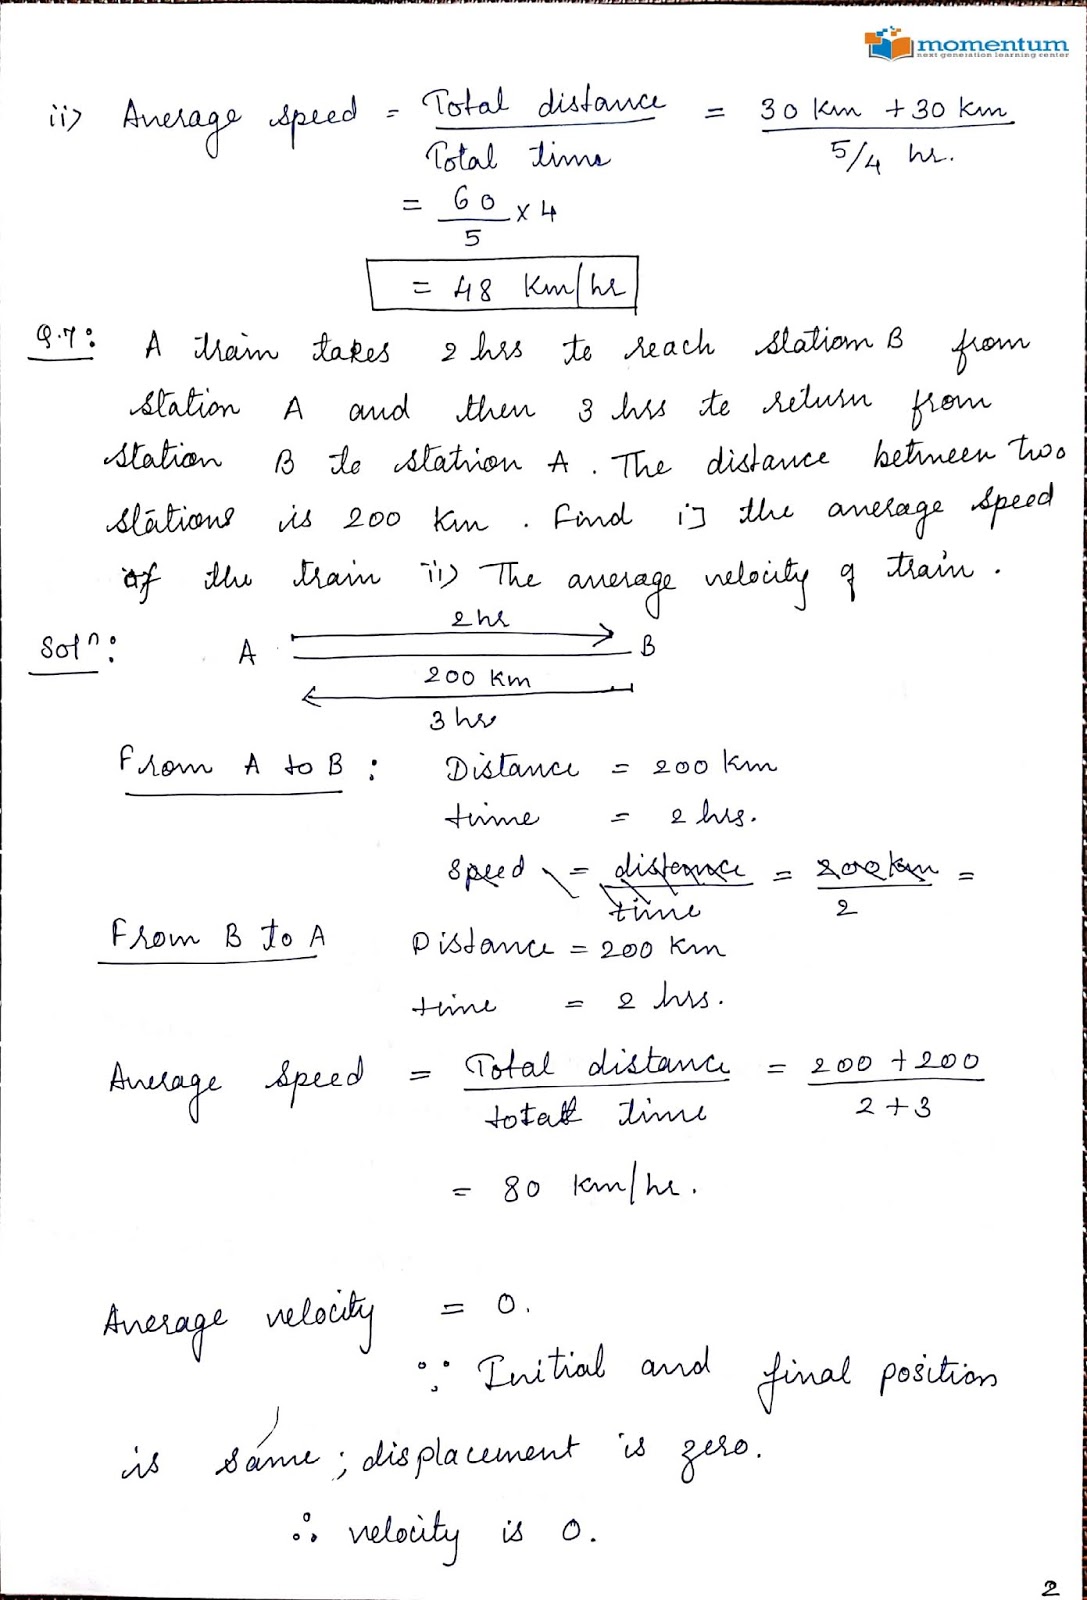 momentum
next generation learning center
ii) Average speed = Total distance / Total time = 30 km + 30 km / 5/4 hr.
= 60/5 x 4
= 48 Km/hr
Q.7: A train takes 2 hrs to reach station B from
station A and then 3 hrs to return from
station B to station A. The distance between two
stations is 200 Km. Find i] the average speed
of the train ii) The average velocity of train.
Soln: A 2 hr B
200 Km
3 hrs
From A to B: Distance = 200 Km
time = 2 hrs.
Speed = distance / time = 200 km / 2 =
From B to A Distance = 200 Km
time = 2 hrs.
Average Speed = Total distance / total time = 200 + 200 / 2 + 3
= 80 Km/hr.
Average velocity = 0.
∵ Initial and final position
is same; displacement is zero.
∴ velocity is 0.
2